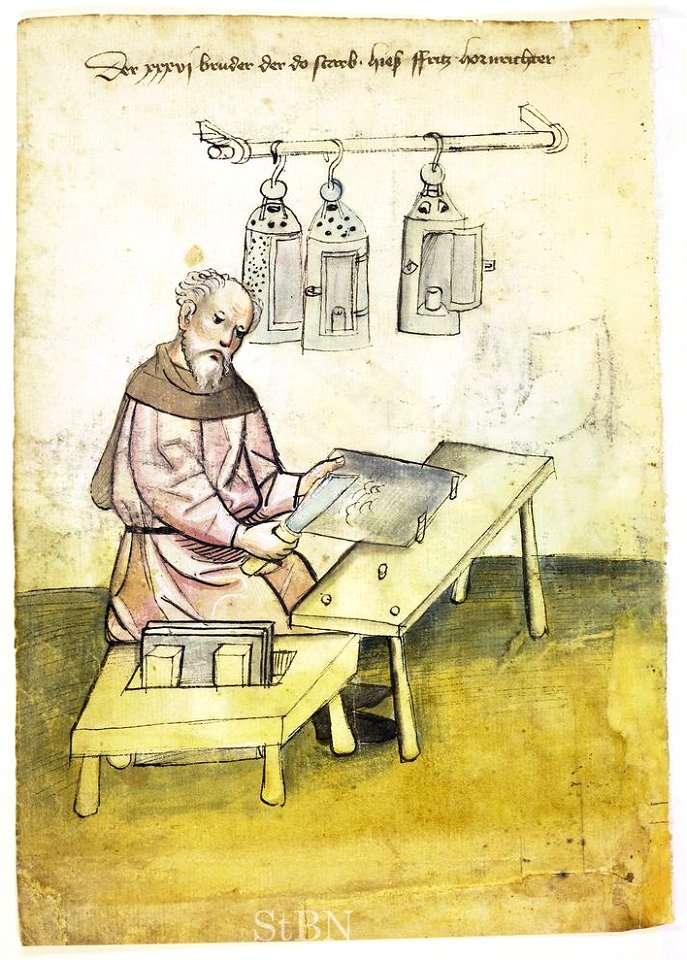 Der xxxvi bruder der do starb · hieß ffritz · hornrichter
StBN